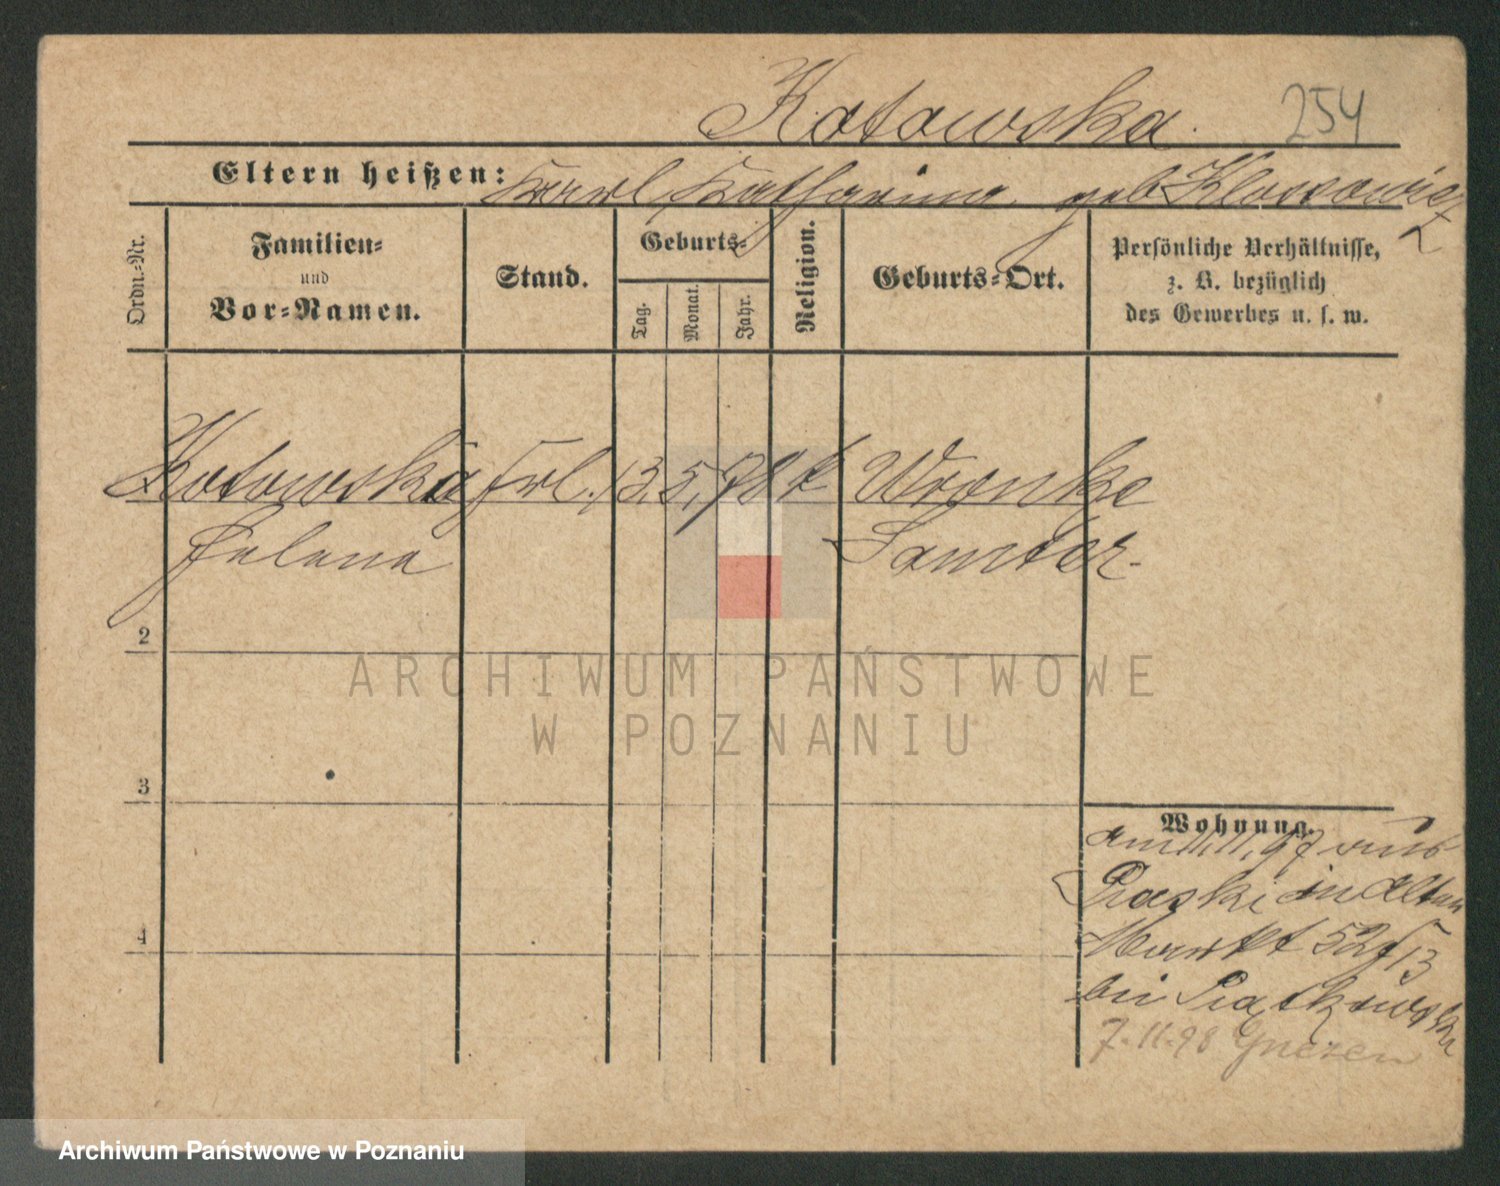 Kotowska. 254
Eltern heißen: Karl Katharina geb Klossowicz
Ordn.-Nr.
Familien-
und
Vor-Namen.
Stand.
Geburts-
Tag.
Monat.
Jahr.
Religion.
Geburts-Ort.
Persönliche Verhältnisse,
z. B. bezüglich
des Gewerbes u. s. w.
Kotowska Frl. 13. 5. 78 k Wronke
Helena Samter.
2
3
4
Wohnung.
am 11. 11. 97 aus
Piaski in Alten
Markt 52
bei Piątkowski
7.11.98 Gnezen
ARCHIWUM PAŃSTWOWE
W POZNANIU
Archiwum Państwowe w Poznaniu